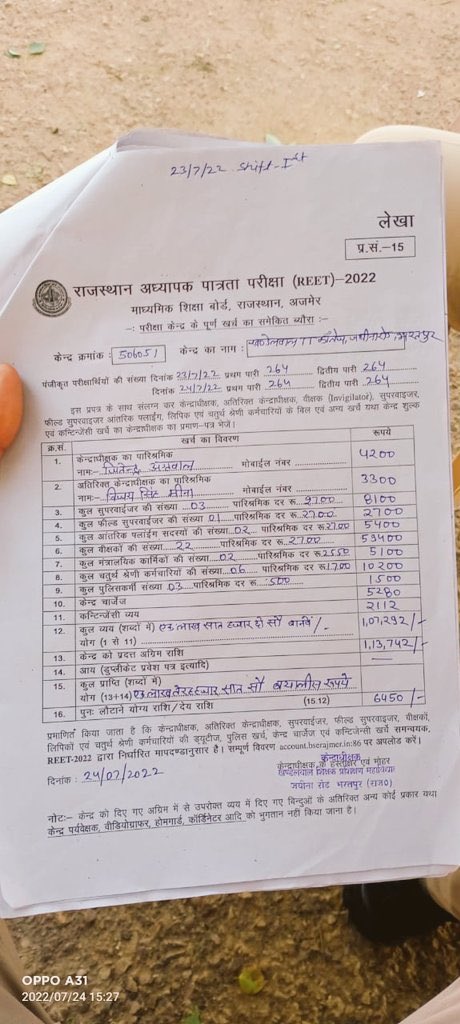 23/7/22 Shift-Ist
लेखा
प्र.सं.–15
राजस्थान अध्यापक पात्रता परीक्षा (REET)–2022
माध्यमिक शिक्षा बोर्ड, राजस्थान, अजमेर
–: परीक्षा केन्द्र के पूर्ण खर्च का समेकित ब्यौरा :–
केन्द्र क्रमांक : 506051 केन्द्र का नाम : खण्डेलवाल TT कॉलेज, भरतपुर
पंजीकृत परीक्षार्थियों की संख्या दिनांक 23/7/22 प्रथम पारी 264 द्वितीय पारी 264
दिनांक 24/7/22 प्रथम पारी 264 द्वितीय पारी 264
इस प्रपत्र के साथ संलग्न कर केन्द्राधीक्षक, अतिरिक्त केन्द्राधीक्षक, वीक्षक (Invigilator), सुपरवाइजर,
फील्ड सुपरवाइजर आंतरिक फ्लाईंग, लिपिक एवं चतुर्थ श्रेणी कर्मचारियों के बिल एवं अन्य खर्च यथा केन्द्र शुल्क
एवं कन्टिन्जेंसी खर्च का केन्द्राधीक्षक का प्रमाण–पत्र भेजें।
क्र.सं. खर्च का विवरण रूपये
1. केन्द्राधीक्षक का पारिश्रमिक 4200
नामः– जितेन्द्र अग्रवाल मोबाईल नंबर
2. अतिरिक्त केन्द्राधीक्षक का पारिश्रमिक 3300
नामः– विजय सिंह मीना मोबाईल नंबर
3. कुल सुपरवाईजर की संख्या 03 पारिश्रमिक दर रू. 2700 8100
4. कुल फील्ड सुपरवाईजर की संख्या 01 पारिश्रमिक दर रू. 2700 2700
5. कुल आंतरिक फ्लाईंग सदस्यों की संख्या 02 पारिश्रमिक दर रू. 2700 5400
6. कुल वीक्षकों की संख्या 22 पारिश्रमिक दर रू. 2700 53400
7. कुल मंत्रालयिक कार्मिकों की संख्या 02 पारिश्रमिक दर रू. 2550 5100
8. कुल चतुर्थ श्रेणी कर्मचारियों की संख्या 06 पारिश्रमिक दर रू. 1700 10200
9. कुल पुलिसकर्मी की संख्या 03 पारिश्रमिक दर रू. 500 1500
10. केन्द्र चार्जेज 5280
11. कन्टिन्जेंसी व्यय 2112
12. कुल व्यय (शब्दों में) एक लाख सात हजार दो सौ बानवे /- 1,07,292/-
योग (1 से 11)
13. केन्द्र को प्रदत्त अग्रिम राशि 1,13,742/-
14. आय (डुप्लीकेट प्रवेश पत्र इत्यादि) —
15. कुल प्राप्ति (शब्दों में)
योग (13+14) एक लाख तेरह हजार सात सौ बयालीस रूपये
16. पुनः लौटाने योग्य राशि/देय राशि (15.12) 6450/-
प्रमाणित किया जाता है कि केन्द्राधीक्षक, अतिरिक्त केन्द्राधीक्षक, सुपरवाईजर, फील्ड सुपरवाइजर, वीक्षकों,
लिपिकों एवं चतुर्थ श्रेणी कर्मचारियों की ड्यूटीज, पुलिस खर्च, केन्द्र चार्जेज एवं कन्टिजेन्सी खर्च समन्वयक,
REET-2022 द्वारा निर्धारित मापदण्डानुसार है। सम्पूर्ण विवरण account.bserajmer.in:86 पर अपलोड करें।
दिनांक : 24/07/2022
केन्द्राधीक्षक
केन्द्राधीक्षक के हस्ताक्षर एवं मोहर
खण्डेलवाल शिक्षक प्रशिक्षण महाविद्यालय
जघीना रोड भरतपुर (राज०)
नोटः– केन्द्र को दिए गए अग्रिम में से उपरोक्त व्यय में दिए गए बिन्दुओं के अतिरिक्त अन्य कोई प्रकार यथा
केन्द्र पर्यवेक्षक, वीडियोग्राफर, होमगार्ड, कॉर्डिनेटर आदि को भुगतान नहीं किया जाना है।
OPPO A31
2022/07/24 15:27